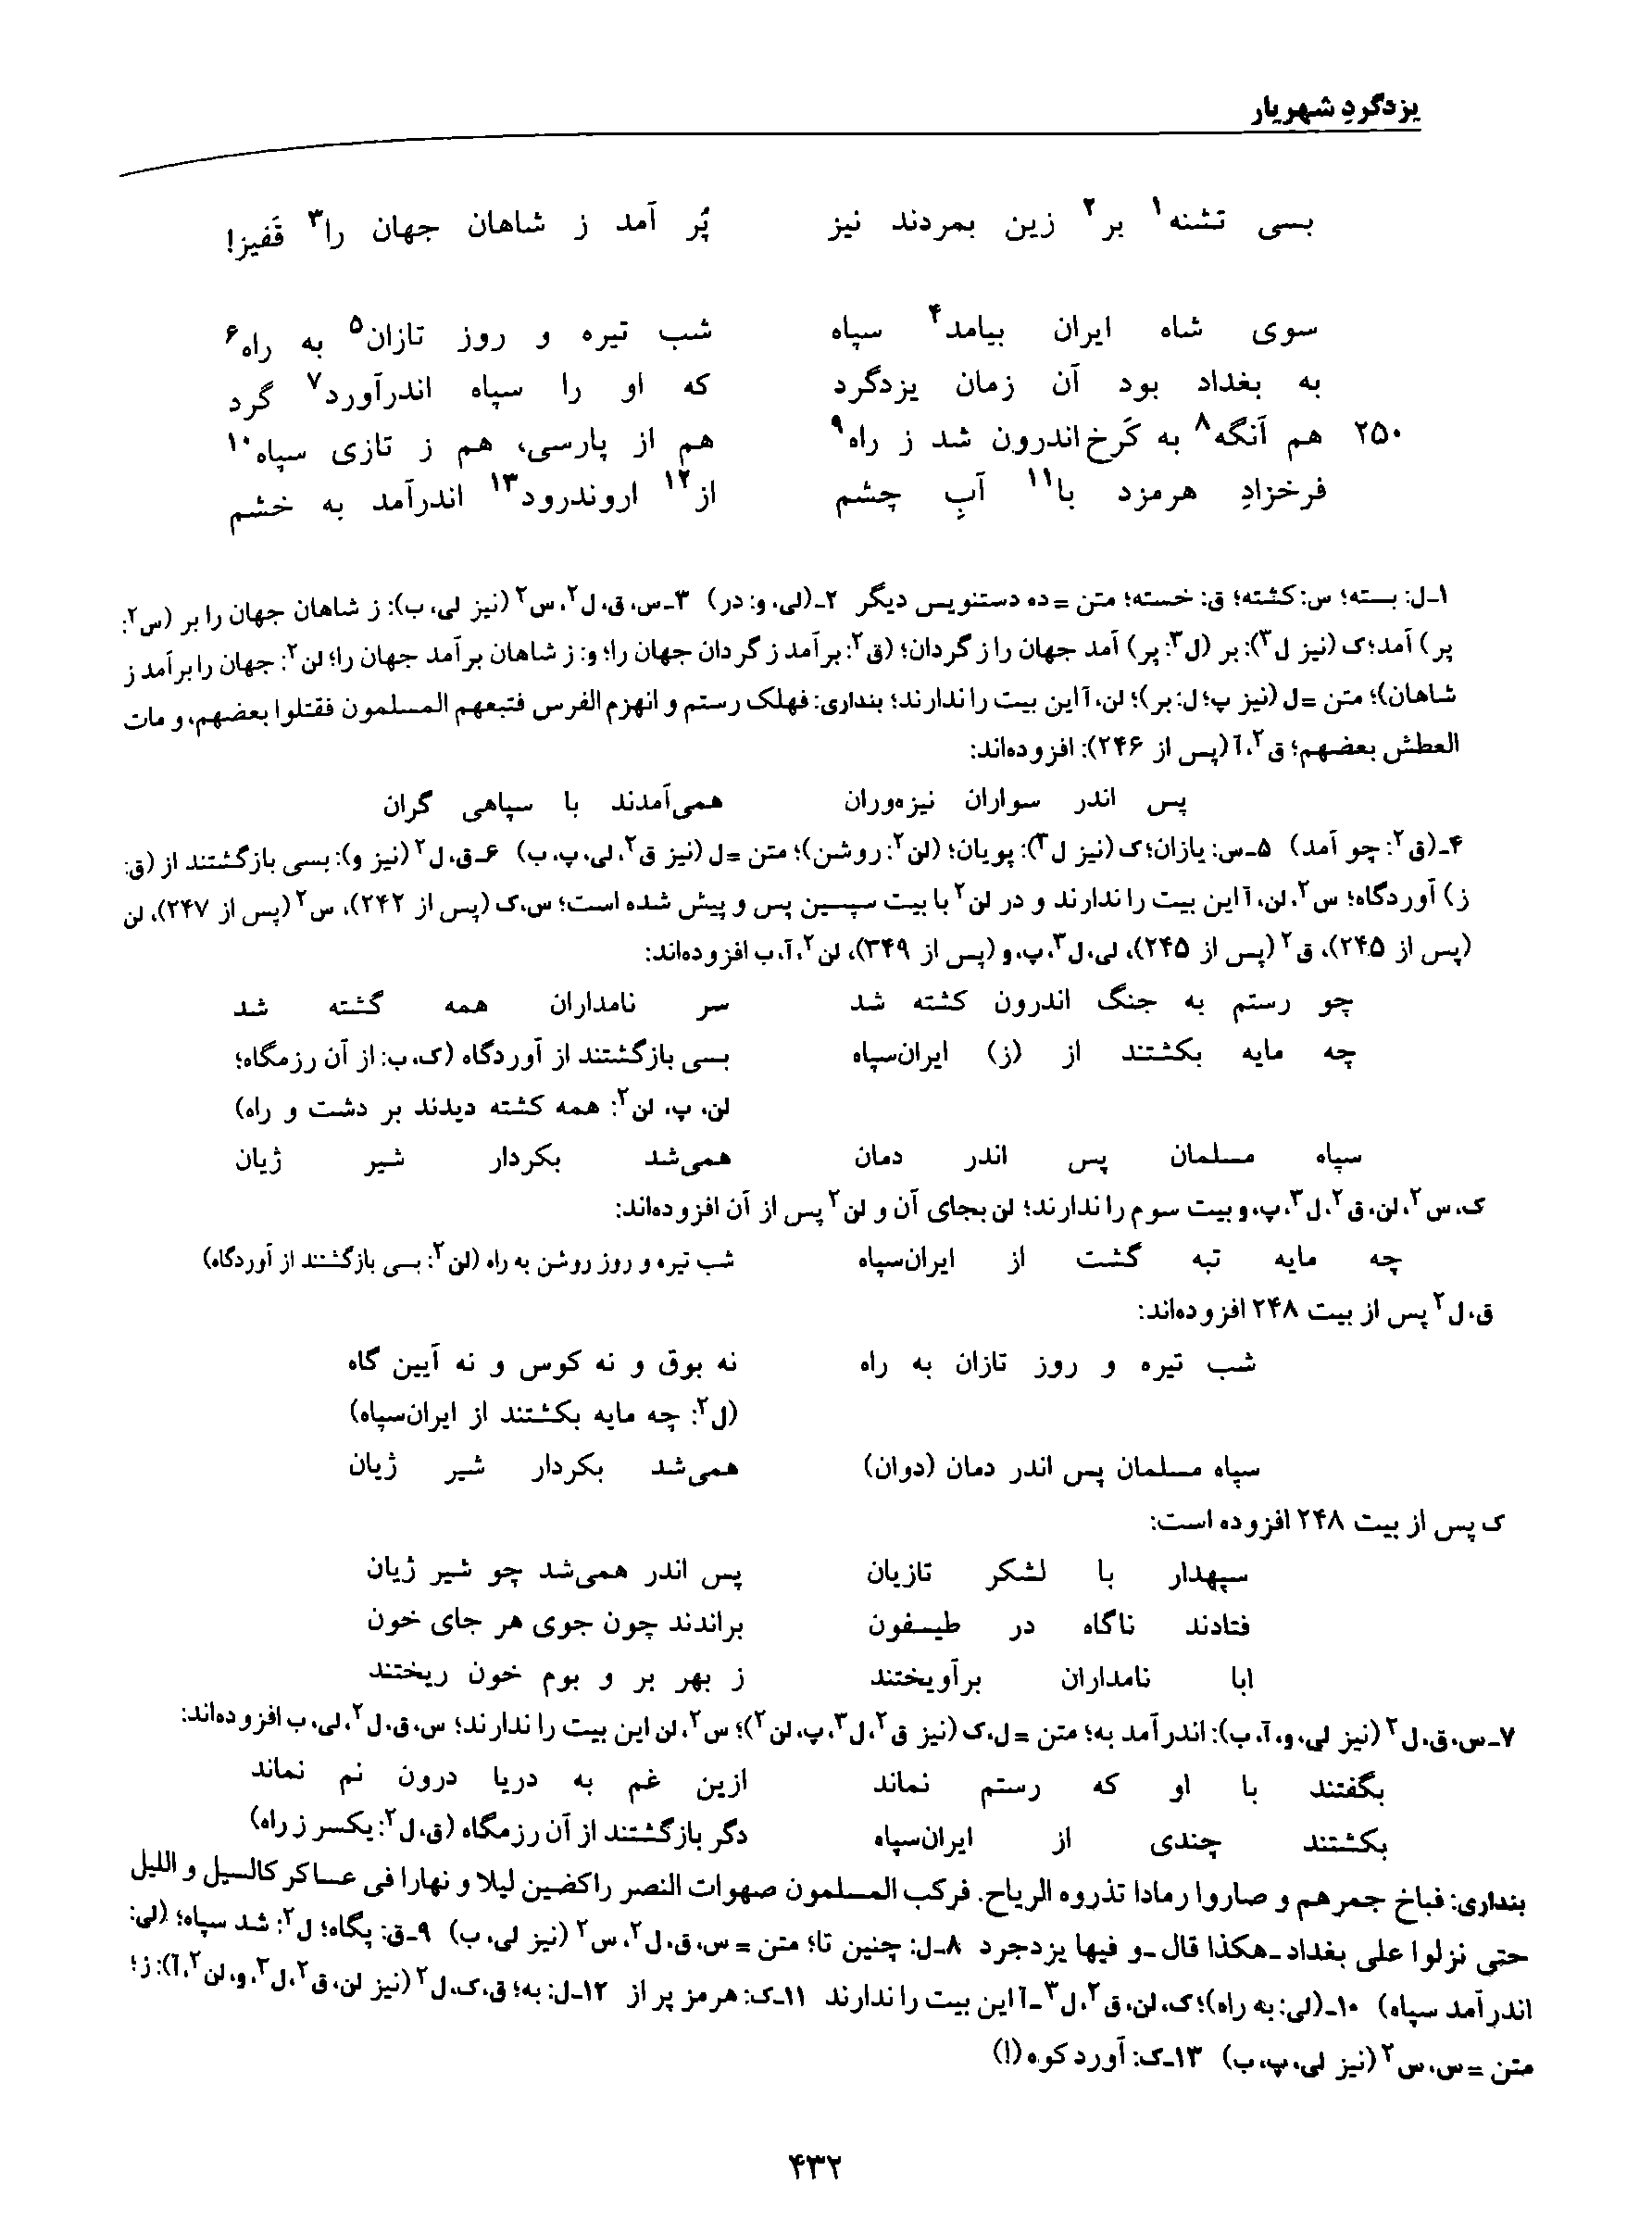 یزدگردِ شهریار
بسی تشنه۱ بر۲ زین بمردند نیز	پُر آمد ز شاهان جهان را۳ قفیز!
سوی شاه ایران بیامد۴ سپاه	شب تیره و روز تازان۵ به راه۶
به بغداد بود آن زمان یزدگرد	که او را سپاه اندرآورد۷ گرد
۲۵۰ هم آنگه۸ به کَرخ اندرون شد ز راه۹	هم از پارسی، هم ز تازی سپاه۱۰
فرخزادِ هرمزد با۱۱ آبِ چشم	از۱۲ اروندرود۱۳ اندرآمد به خشم
۱ـ ل: بسته؛ س: کشته؛ ق: خسته؛ متن = ده دستنویس دیگر ۲ـ (لی، و: در) ۳ـ س، ق، ل۲، س۲ (نیز لی، ب): ز شاهان جهان را بر (س۲:
پر) آمد؛ ک (نیز ل۳): بر (ل۳: پر) آمد جهان را ز گردان؛ (ق۲: برآمد ز گردان جهان را؛ و: ز شاهان برآمد جهان را؛ لن۲: جهان را برآمد ز
شاهان)؛ متن = ل (نیز پ؛ ل: بر)؛ لن، آ این بیت را ندارند؛ بنداری: فهلک رستم و انهزم الفرس فتبعهم المسلمون فقتلوا بعضهم، و مات
العطش بعضهم؛ ق۲، آ (پس از ۲۴۶): افزوده‌اند:
پس اندر سواران نیزه‌وران	همی‌آمدند با سپاهی گران
۴ـ (ق۲: چو آمد) ۵ـ س: یازان؛ ک (نیز ل۳): پویان؛ (لن۲: روشن)؛ متن = ل (نیز ق۲، لی، پ، ب) ۶ـ ق، ل۲ (نیز و): بسی بازگشتند از (ق:
ز) آوردگاه؛ س۲، لن، آ این بیت را ندارند و در لن۲ با بیت سپسین پس و پیش شده است؛ س، ک (پس از ۲۴۲)، س۲ (پس از ۲۴۷)، لن
(پس از ۲۴۵)، ق۲ (پس از ۲۴۵)، لی، ل۳، پ، و (پس از ۳۴۹)، لن۲، آ، ب افزوده‌اند:
چو رستم به جنگ اندرون کشته شد	سر نامداران همه گشته شد
چه مایه بکشتند از (ز) ایران‌سپاه	بسی بازگشتند از آوردگاه (ک، ب: از آن رزمگاه؛
لن، پ، لن۲: همه کشته دیدند بر دشت و راه)
سپاه مسلمان پس اندر دمان	همی‌شد بکردار شیر ژیان
ک، س۲، لن، ق۲، ل۳، پ، و بیت سوم را ندارند؛ لن بجای آن و لن۲ پس از آن افزوده‌اند:
چه مایه تبه گشت از ایران‌سپاه	شب تیره و روز روشن به راه (لن۲: بسی بازگشتند از آوردگاه)
ق، ل۲ پس از بیت ۲۴۸ افزوده‌اند:
شب تیره و روز تازان به راه	نه بوق و نه کوس و نه آیین گاه
(ل۲: چه مایه بکشتند از ایران‌سپاه)
سپاه مسلمان پس اندر دمان (دوان)	همی‌شد بکردار شیر ژیان
ک پس از بیت ۲۴۸ افزوده است:
سپهدار با لشکر تازیان	پس اندر همی‌شد چو شیر ژیان
فتادند ناگاه در طیسفون	براندند چون جوی هر جای خون
ابا نامداران برآویختند	ز بهر بر و بوم خون ریختند
۷ـ س، ق، ل۲ (نیز لی، و، آ، ب): اندرآمد به؛ متن = ل، ک (نیز ق۲، ل۳، پ، لن۲)؛ س۲، لن این بیت را ندارند؛ س، ق، ل۲، لی، ب افزوده‌اند:
بگفتند با او که رستم نماند	ازین غم به دریا درون نم نماند
بکشتند چندی از ایران‌سپاه	دگر بازگشتند از آن رزمگاه (ق، ل۲: یکسر ز راه)
بنداری: فباخ جمرهم و صاروا رمادا تذروه الریاح. فرکب المسلمون صهوات النصر راکضین لیلا و نهارا فی عساکر کالسیل و اللیل
حتی نزلوا علی بغداد ـ هکذا قال ـ و فیها یزدجرد ۸ـ ل: چنین تا؛ متن = س، ق، ل۲، س۲ (نیز لی، ب) ۹ـ ق: پگاه؛ ل۲: شد سپاه؛ (لی:
اندرآمد سپاه) ۱۰ـ (لی: به راه)؛ ک، لن، ق۲، ل۳ـ آ این بیت را ندارند ۱۱ـ ک: هرمز پر از ۱۲ـ ل: به؛ ق، ک، ل۲ (نیز لن، ق۲، ل۳، و، لن۲، آ): ز؛
متن = س، س۲ (نیز لی، پ، ب) ۱۳ـ ک: آورد کوه (!)
۴۳۲